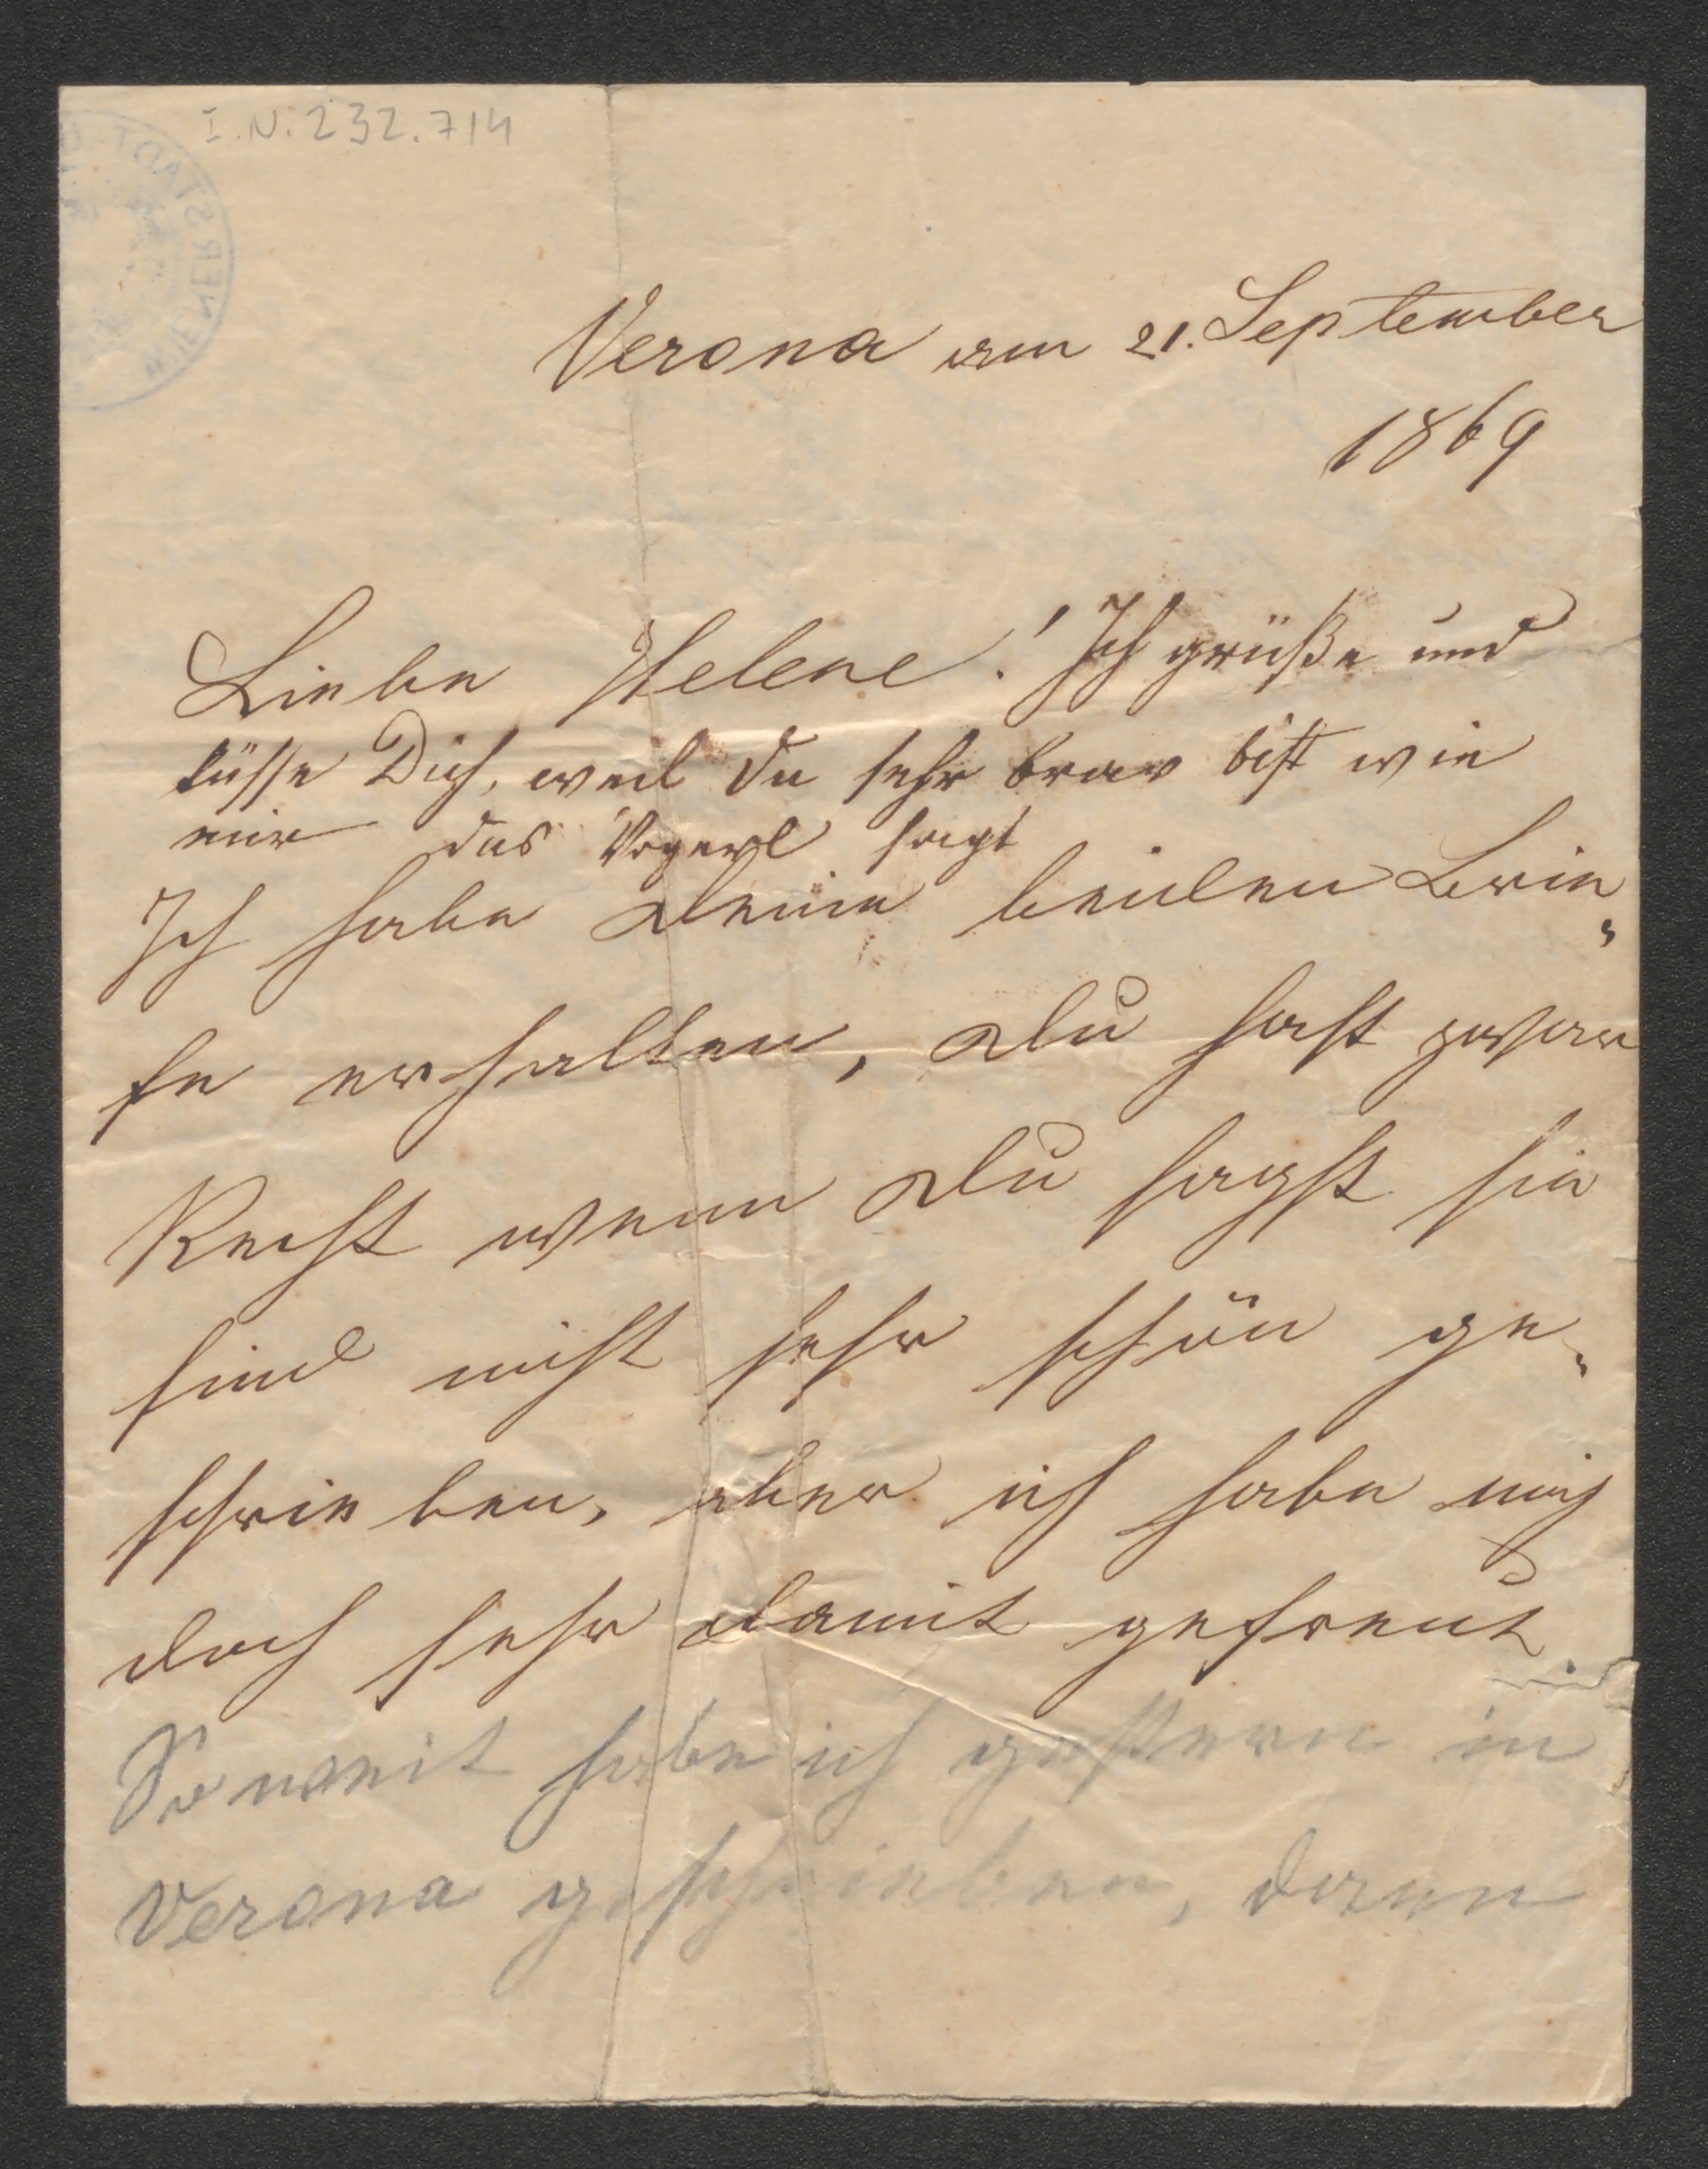 I.N. 232.714
Verona am 21. September
1869
Liebe Helene! Ich grüße und
küsse Dich, weil Du sehr brav bist wie
mir das Vogerl sagt
Ich habe Deine beiden Brie„
fe erhalten, Du hast zwar
Recht wenn Du sagst sie
sind nicht sehr schön ge„
schrieben, aber ich habe mich
doch sehr damit gefreut
So weit habe ich gestern in
Verona geschrieben, dann